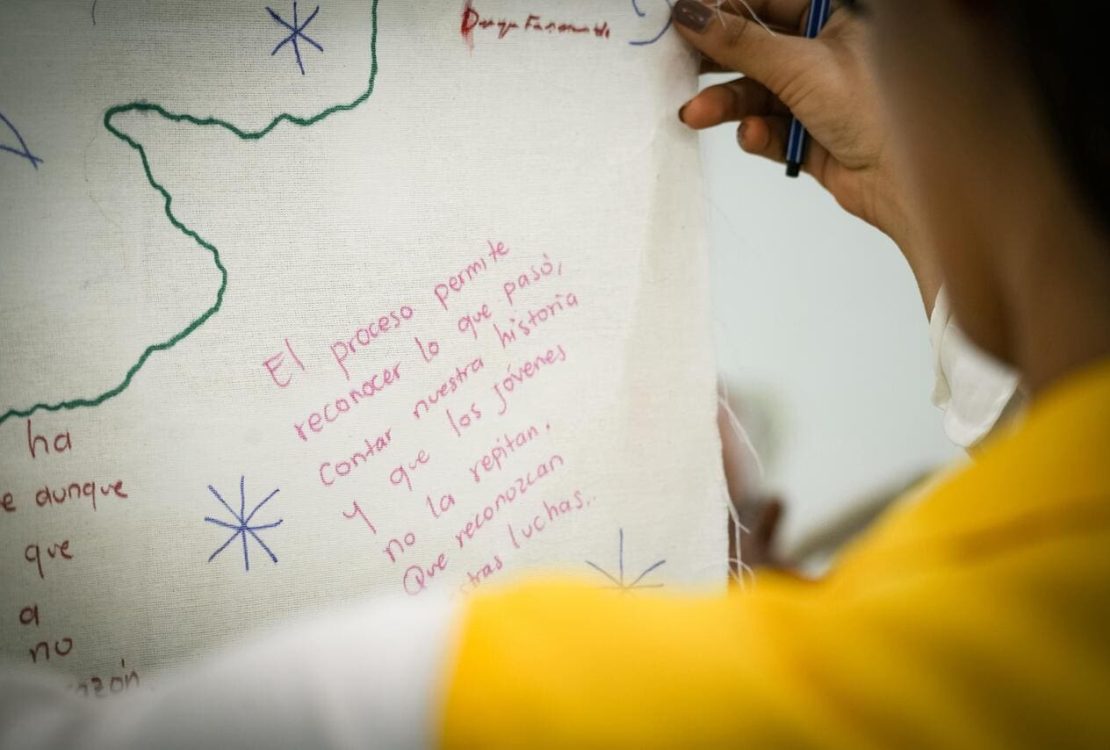 El proceso permite
reconocer lo que pasó,
contar nuestra historia
y que los jóvenes
no la repitan.
Que reconozcan
stras luchas..
ha
e aunque
que
a
no
azón